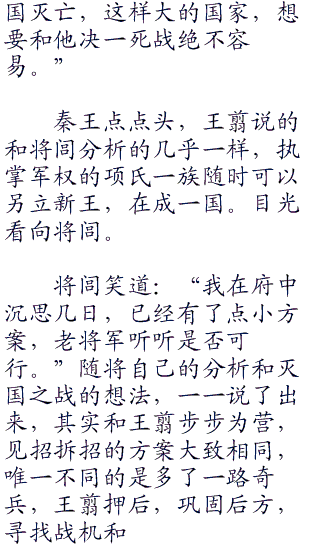 国灭亡，这样大的国家，想
要和他决一死战绝不容
易。”
秦王点点头，王翦说的
和将闾分析的几乎一样，执
掌军权的项氏一族随时可以
另立新王，在成一国。目光
看向将闾。
将闾笑道：“我在府中
沉思几日，已经有了点小方
案，老将军听听是否可
行。”随将自己的分析和灭
国之战的想法，一一说了出
来，其实和王翦步步为营，
见招拆招的方案大致相同，
唯一不同的是多了一路奇
兵，王翦押后，巩固后方，
寻找战机和